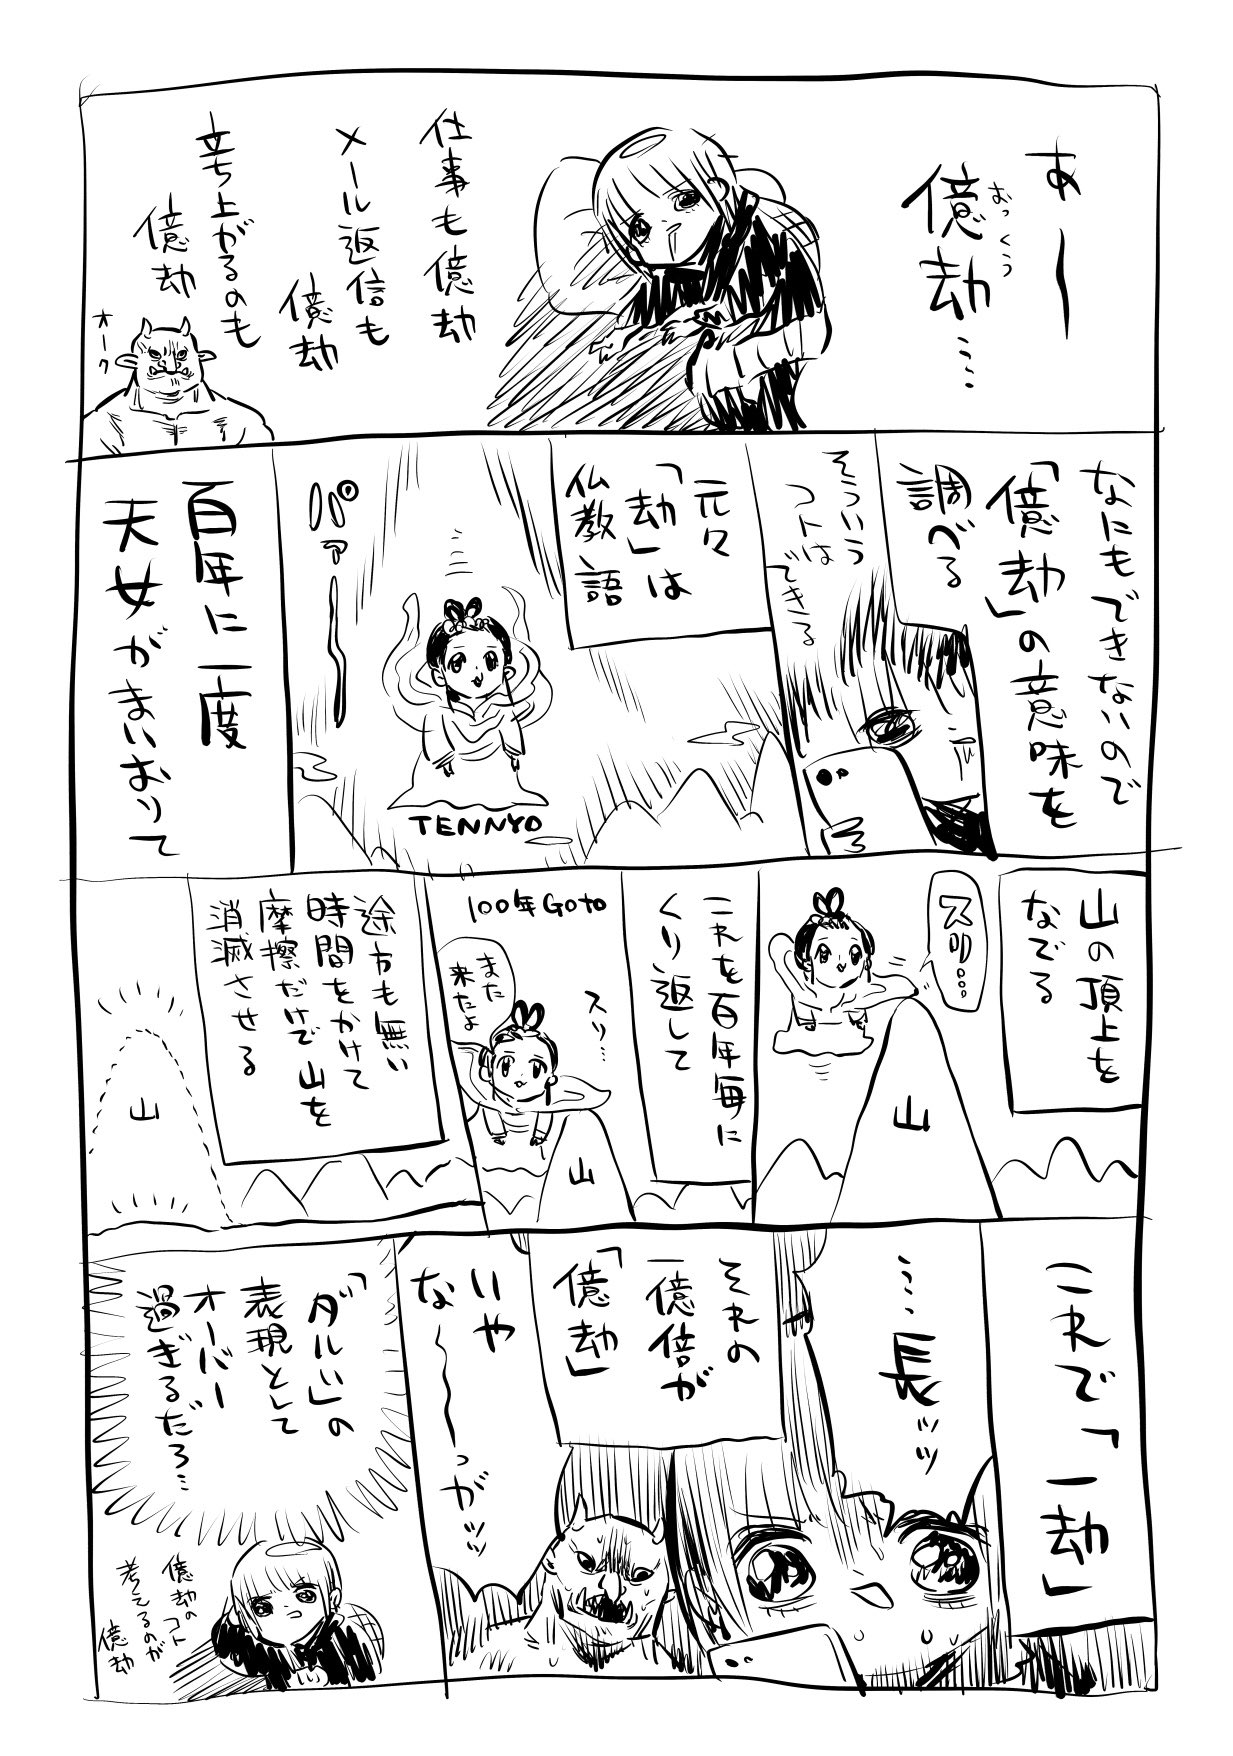 あー
億劫…‥
おっくう
仕事も億劫
メール返信も
億劫
立ち上がるのも
億劫
オーク
なにもできないので
「億劫」の意味を
調べる
そういう
コトは
できる
元々
「劫」は
仏教語
パァー
TENNYO
百年に一度
天女がまいおりて
山の頂上を
なでる
スリ…
山
これを百年毎に
くり返して
100年Goto
スリ…
また
来たよ
山
途方も無い
時間をかけて
摩擦だけで山を
消滅させる
山
これで「一劫」
…‥長ッッ
それの
一億倍が
「億劫」
いや
な〜ーっがッッ
「ダルい」の
表現として
オーバー
過ぎるだろ…
億劫のコト
考えるのが
億劫